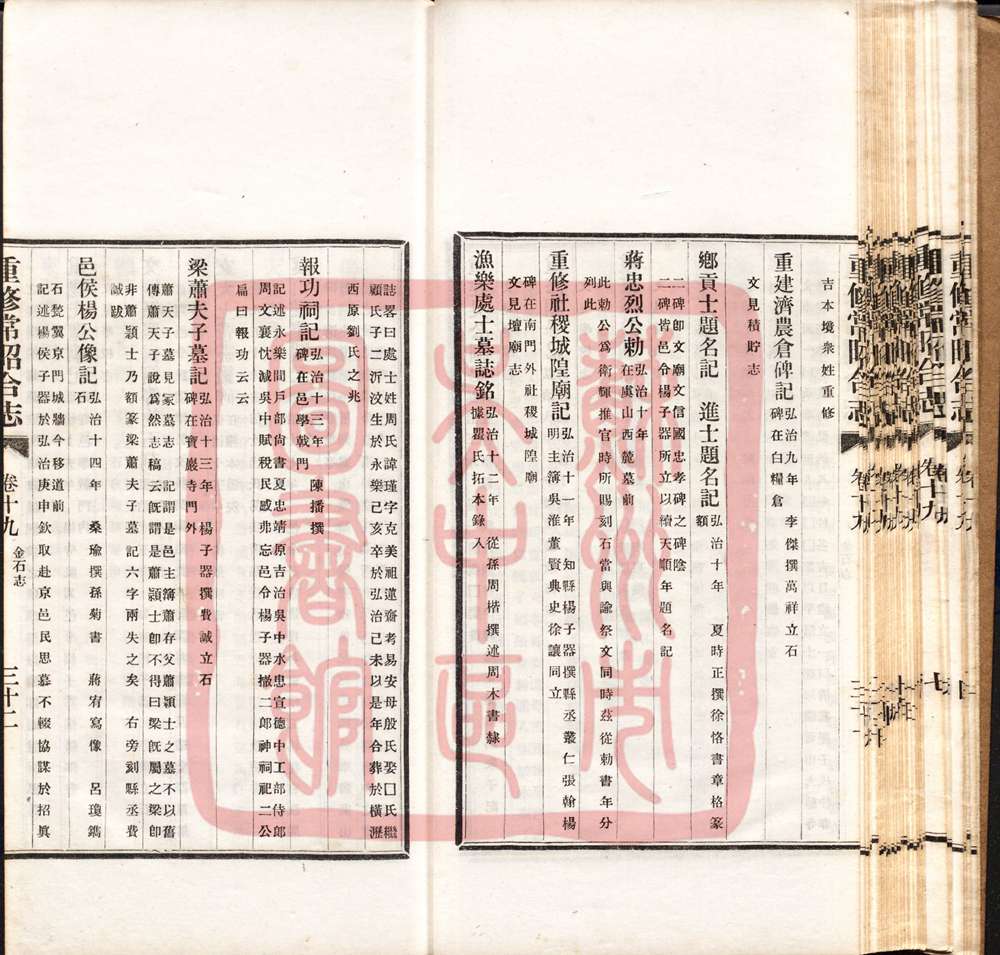 吉本境衆姓重修
重建濟農倉碑記 弘治九年 李傑撰萬祥立石
碑在白糧倉
文見積貯志
鄉貢士題名記 進士題名記 弘治十年 夏時正撰徐恪書章格篆
額
二碑卽文廟文信國忠孝碑之碑陰
二碑皆邑令楊子器所立以續天順年題名記
蔣忠烈公勅 弘治十年
在虞山西麓墓前
此勅公爲衛輝推官時所賜刻石當與諭祭文同時茲從勅書年分
列此
重修社稷城隍廟記 弘治十一年 知縣楊子器撰縣丞叢仁張翰楊
明主簿吳淮董賢典史徐讓同立
碑在南門外社稷城隍廟
文見壇廟志
漁樂處士墓誌銘 弘治十二年 從孫周楷撰述周木書隸
據瞿氏拓本錄入
誌畧曰處士姓周氏諱瑾字克美祖蓮齋考易安母殷氏娶囗氏繼
顧氏子二沂汶生於永樂己亥卒於弘治己未以是年合葬於橫瀝
西原劉氏之兆
報功祠記 弘治十三年 陳播撰
碑在邑學戟門
記述永樂間戶部尚書夏忠靖原吉治吳中水患宣德中工部侍郎
周文襄忱減吳中賦稅民感弗忘邑令楊子器撤二郎神祠祀二公
扁曰報功云云
梁蕭夫子墓記 弘治十三年 楊子器撰費誠立石
碑在寶嚴寺門外
蕭夫子墓見冢墓志 記謂是邑主簿蕭存父蕭穎士之墓不以舊
傳蕭天子說爲然志稿云旣謂是蕭穎士卽不得曰梁旣屬之梁卽
非蕭穎士乃額篆梁蕭夫子墓記六字兩失之矣 右旁刻縣丞費
誠跋
邑侯楊公像記 弘治十四年 桑瑜撰孫菊書 蔣宥寫像 呂瓊鐫
石
石甃翼京門城牆今移道前
記述楊侯子器於弘治庚申欽取赴京邑民思慕不輟協謀於招眞
重修常昭合志 卷十九 金石志 三十二